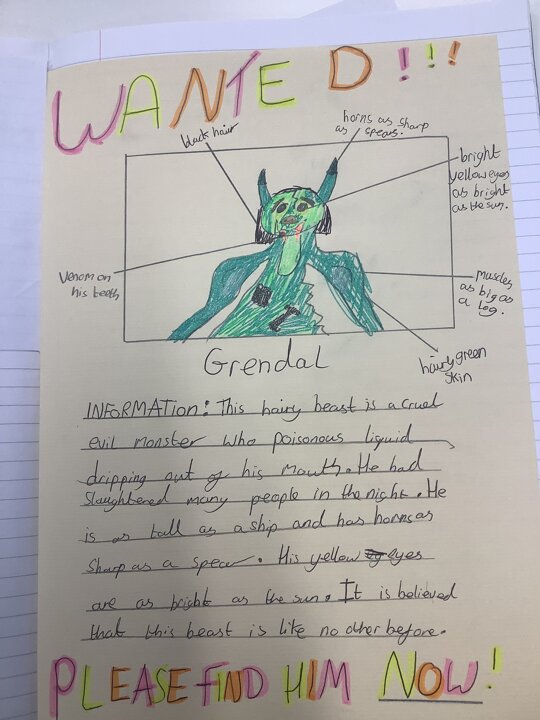 WANTED!!!
black hair
horns as sharp
as spears.
bright
yellow eyes
as bright
as the sun.
Venom on
his teeth
Muscles
as big as
a log.
hairy green
skin
Grendal
INFORMATION: This hairy beast is a cruel
evil monster who poisonous liquid
dripping out of his mouth. He had
slaughtered many people in the night. He
is as tall as a ship and has horns as
sharp as a spear. His yellow eyes
are as bright as the sun. It is believed
that this beast is like no other before.
PLEASE FIND HIM NOW!